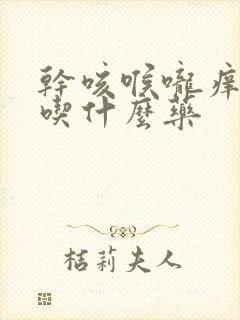 幹咳喉嚨痒
喫什麼藥
桔莉夫人